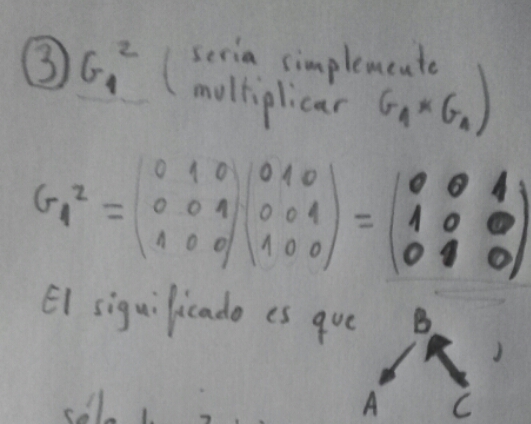 ③ G₁² ( sería simplemente
multiplicar G₁ * G₁ )
G₁² = ( 0 1 0 ) ( 0 1 0 ) = ( 0 0 1 )
( 0 0 1 ) ( 0 0 1 ) ( 1 0 0 )
( 1 0 0 ) ( 1 0 0 ) ( 0 1 0 )
El significado es que B ,
A C
sólo